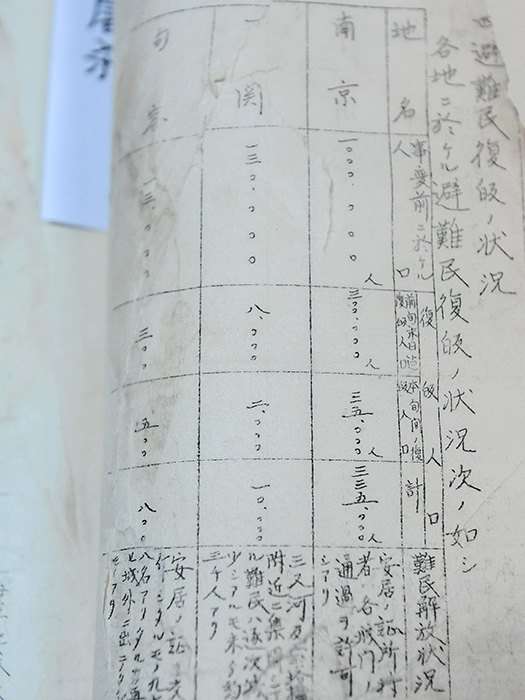 四 避難民復皈ノ状況
各地ニ於ケル避難民復皈ノ状況次ノ如シ
地名
事変前ニ於ケル人口
復皈人口
前旬末日迄復皈人口
本旬間ノ復皈人口
計
難民解放状況
南京
一、〇〇〇、〇〇〇人
三〇〇、〇〇〇人
三五、〇〇〇人
三三五、〇〇〇人
安居ノ証所持
者ハ各城門ノ
通過ヲ許可
シアリ
関
一三〇、〇〇〇
八、〇〇〇
二、〇〇〇
一〇、〇〇〇
三叉河
附近ニ集
ル難民ハ逐次減
少シアルモ未タ約
三千人アリ
句容
一三、〇〇〇
三〇〇
五〇〇
八〇〇
安居ノ証
八名アリ
城外ニ出